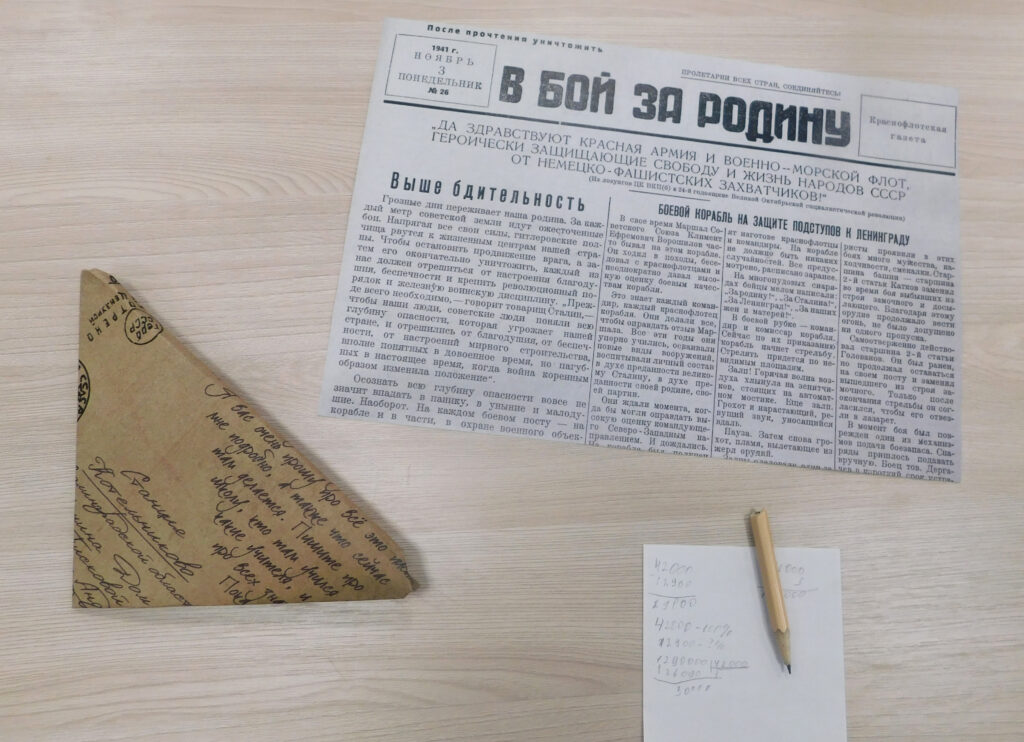 После прочтения уничтожить
1941 г.
НОЯБРЬ
3
ПОНЕДЕЛЬНИК
№ 26
ПРОЛЕТАРИИ ВСЕХ СТРАН, СОЕДИНЯЙТЕСЬ!
В БОЙ ЗА РОДИНУ
Краснофлотская
газета
„ДА ЗДРАВСТВУЮТ КРАСНАЯ АРМИЯ И ВОЕННО--МОРСКОЙ ФЛОТ,
ГЕРОИЧЕСКИ ЗАЩИЩАЮЩИЕ СВОБОДУ И ЖИЗНЬ НАРОДОВ СССР
ОТ НЕМЕЦКО-ФАШИСТСКИХ ЗАХВАТЧИКОВ!"
(Из лозунгов ЦК ВКП(б) к 24-й годовщине Великой Октябрьской социалистической революции)
Выше бдительность
Грозные дни переживает наша родина. За каж-
дый метр советской земли идут ожесточенные
бои. Напрягая все свои силы, гитлеровские пол-
чища рвутся к жизненным центрам нашей стра-
ны. Чтобы остановить продвижение врага, а за-
тем его окончательно уничтожить, каждый из
нас должен отрешиться от настроения благоду-
шия, беспечности и крепить революционный по-
рядок и железную воинскую дисциплину. „Преж-
де всего необходимо,— говорит товарищ Сталин,—
чтобы наши люди, советские люди поняли всю
глубину опасности, которая угрожает нашей
стране, и отрешились от благодушия, от беспеч-
ности, от настроений мирного строительства,
вполне понятных в довоенное время, но пагуб-
ных в настоящее время, когда война коренным
образом изменила положение".
Осознать всю глубину опасности вовсе не
значит впадать в панику, в уныние и малоду-
шие. Наоборот. На каждом боевом посту — на
корабле и в части, в охране военного объек-
БОЕВОЙ КОРАБЛЬ НА ЗАЩИТЕ ПОДСТУПОВ К ЛЕНИНГРАДУ
В свое время Маршал Со-
ветского Союза Климент
Ефремович Ворошилов час-
то бывал на этом корабле,
он ходил в походы, бесе-
довал с краснофлотцами и
неоднократно давал высо-
кую оценку боевым качест-
вам корабля.
Это знает каждый коман-
дир, каждый краснофлотец
корабля. Они делали все,
чтобы оправдать отзыв Мар-
шала. Все эти годы они
упорно учились, осваивали
новые виды вооружений,
воспитывали личный состав
в духе преданности велико-
му Сталину, в духе пре-
данности своей родине, сво-
ей партии.
Они ждали момента, ког-
да бы могли оправдать вы-
сокую оценку командующе-
го Северо-Западным на-
правлением. И дождались.
На корабле был получен
ят наготове краснофлотцы
и командиры. На корабле
не должно быть никаких
случайностей. Все предус-
мотрено, расписано заранее.
На многопудовых снаря-
дах бойцы мелом написали:
„Зародину!", „За Сталина!",
„За Ленинград!", „За наших
жен и матерей!".
В боевой рубке — коман-
дир и комиссар корабля.
Сейчас по их приказанию
корабль начнет стрельбу.
Стрелять придется по не-
видимым площадям.
Залп! Горячая волна воз-
духа хлынула на зенитчи-
ков, стоящих на автомат-
ном мостике. Еще залп.
Грохот и нарастающий, ре-
вущий звук, уносящийся
вдаль.
Пауза. Затем снова гро-
хот, пламя, вылетающее из
жерл орудий.
ристы проявили в этих
боях много мужества, на-
ходчивости, смекалки. Стар-
шина башни — старшина
2-й статьи Катков заменил
во время боя выбывших из
строя замочного и заряд-
ного. Благодаря этому
орудие продолжало вести
огонь, не было допущено
ни одного пропуска.
Самоотверженно действо-
вал старшина 2-й статьи
Голованов. Он был ранен,
но продолжал оставаться
на своем посту и заменил
вышедшего из строя за-
мочного. Только после
окончания стрельбы он со-
гласился, чтобы его отвез-
ли в лазарет.
В момент боя был пов-
режден один из механиз-
мов подачи боезапаса. Сна-
ряды пришлось подавать
вручную. Боец тов. Дерга-
чев в короткий срок устра-
СССР
Я вас очень прошу про всё это
мне подробно, а также что сейчас
там делается. Пишите про
школу, кто там учился
какие учителя, и
про всех
Станция
Котельниково
42000
12900
42000-100%
12900-?%
1290000 42000
126000
30000